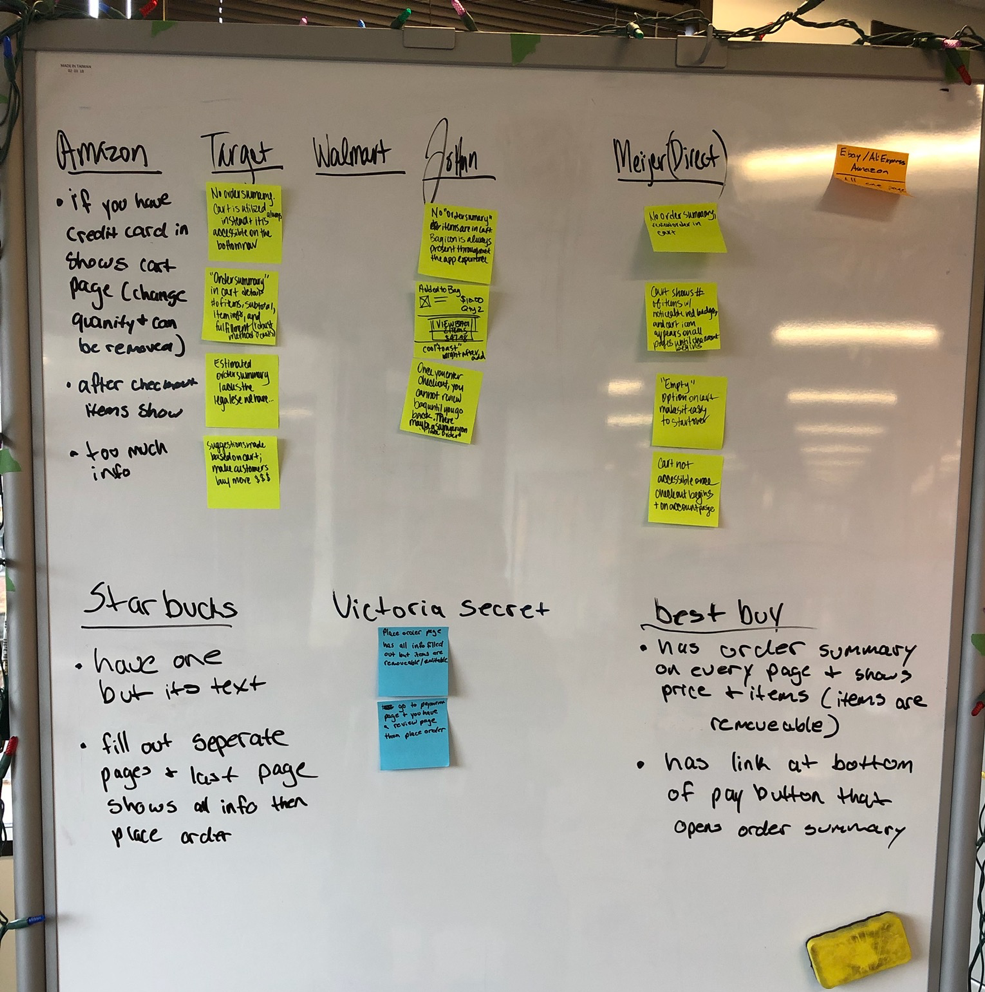 Amazon
• if you have
credit card in
shows cart
page (change
quanity + can
be removed)
• after checkout
items show
• too much
info
Target
No order summary.
Cart is utilized
instead it is always
accessible on the
bottom nav
"Order summary"
in cart details
# of items, subtotal,
item info, and
fulfillment
Estimated
order summary
lacks the
legalese we have...
Suggestions made
based on cart;
make customers
buy more $$$
Walmart
JoAnn
No "order summary"
items are in cart
Bag icon is always
present throughout
the app experience
Added to Bag
$10.00
Qty 2
VIEW BAG
Once you enter
checkout, you
cannot review
bag until you go
back. There
may be a summary on
Meijer (Direct)
No order summary,
in
cart
Cart shows #
of items w/
noticeable red badge,
and cart icon
appears on all
pages until checkout
"Empty"
option on cart
makes it easy
to start over
Cart not
accessible once
checkout begins
+ on account page
Ebay/AliExpress
Amazon
Starbucks
• have one
but its text
• fill out seperate
pages + last page
shows all info then
place order
Victoria secret
Place order page
has all info filled
out but items are
removeable/editable
go to payment
page + you have
a review page
then place order
best buy
• has order summary
on every page + shows
price + items (items are
removeable)
• has link at bottom
of pay button that
opens order summary